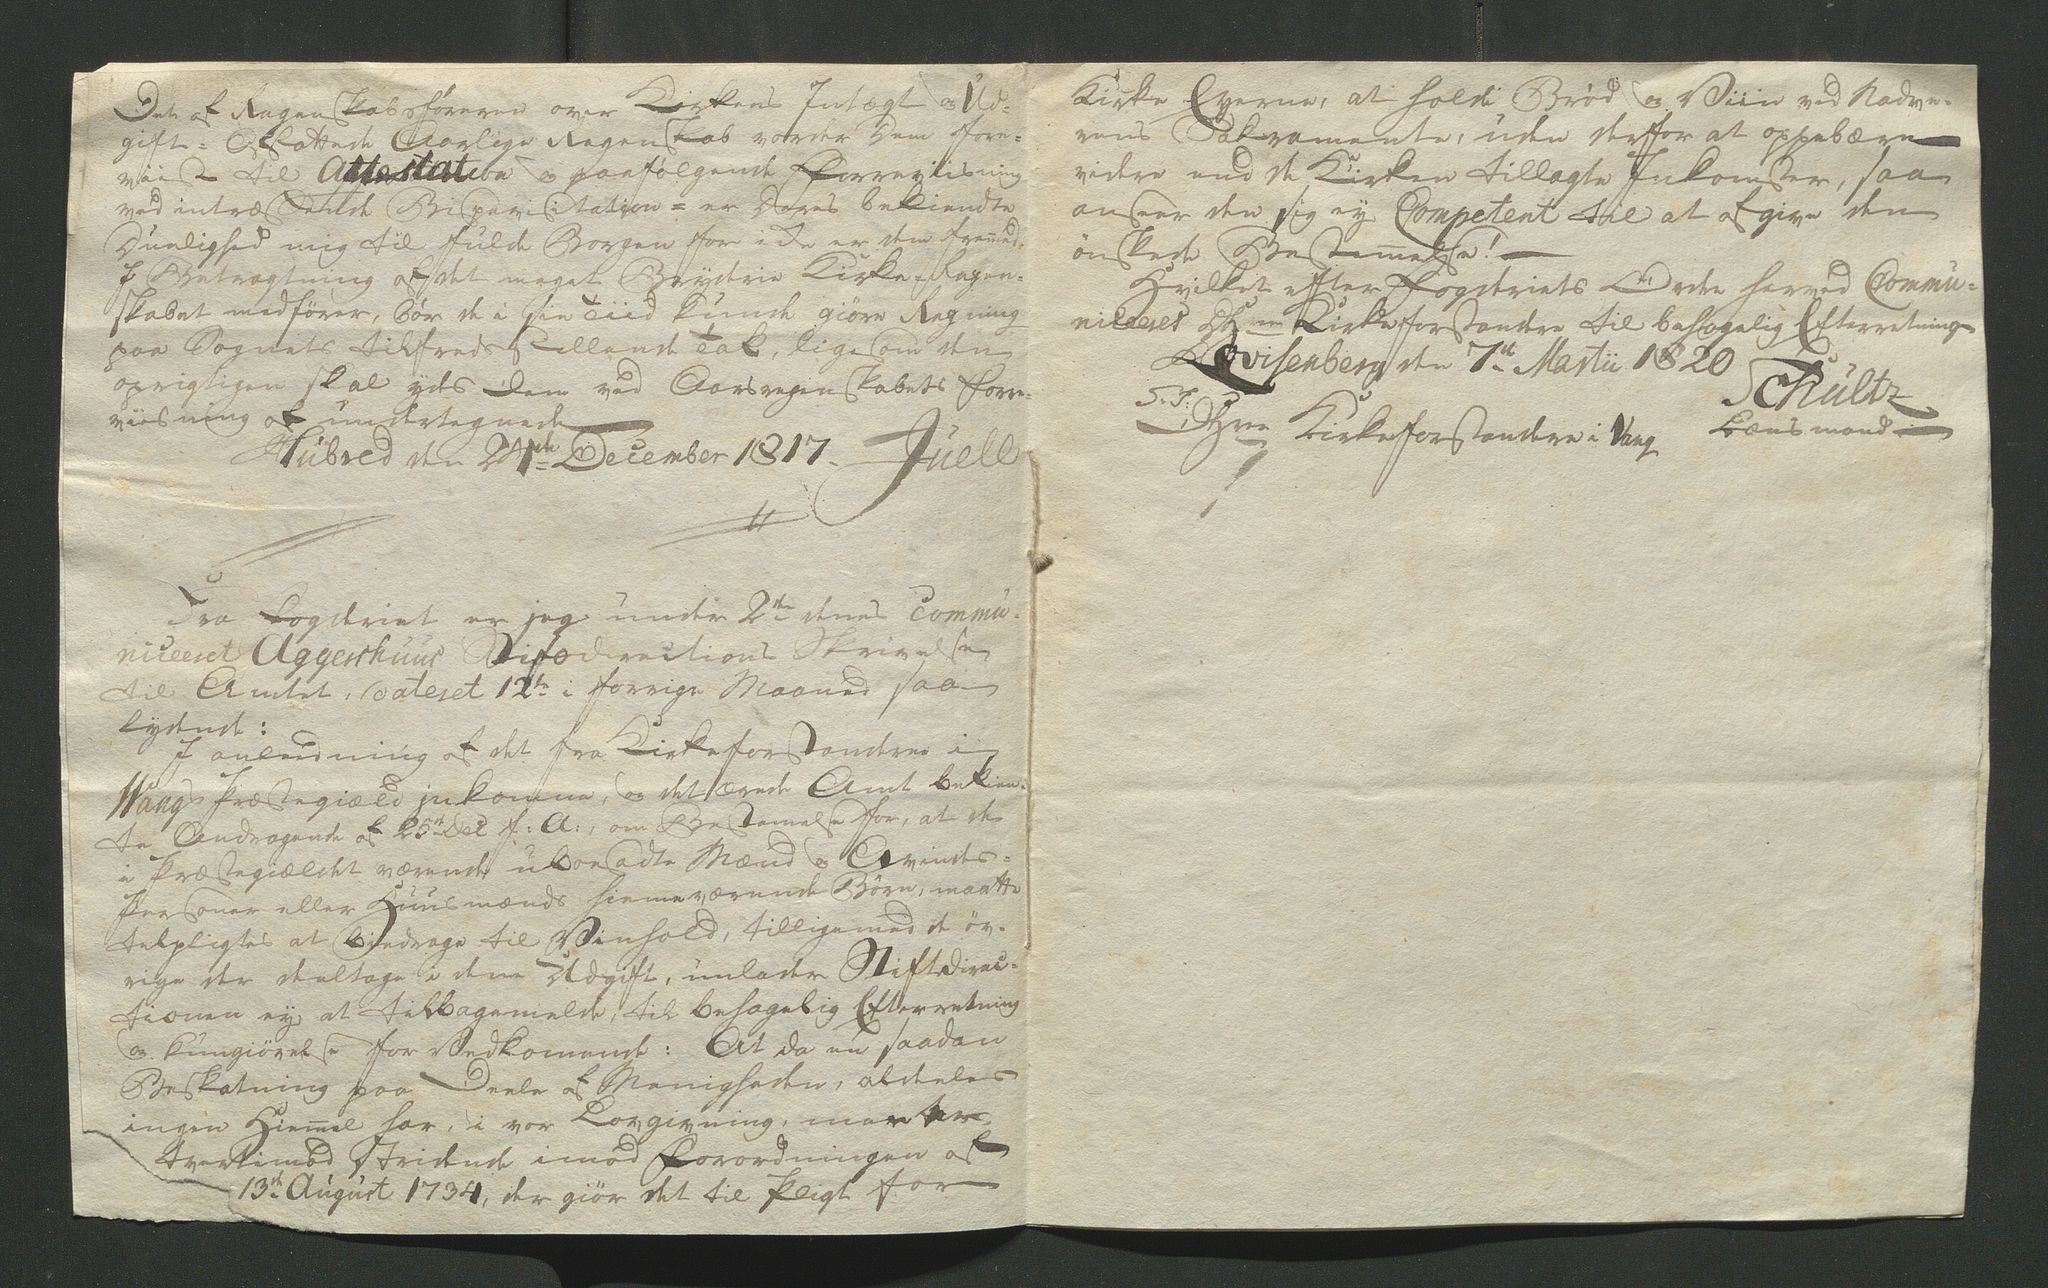 Det af Regenskabsføreren over Kirkens Intægt og Ud-
gift = Affattede Aarlige Regenskab vorder Dem fore-
viist til Attestation og paafølgende Forreviisning
ved intræffende Bispevisitation = er Deres bekiendte
Duelighed mig til fulde Borgen for i De er dem fremmed.
I Betragtning af det meget Bryderie Kirke-Regen-
skabet medfører, bør de i sin Tiid kunde giøre Regning
paa Sognets tilfredsstillende Tak, ligesom den
oprigtigen skal yds dem ved Aarsregenskabets Forre-
viisning af undertegnede
Hubred den 24de December 1817. Juell
Fra Fogderiet er jeg under 2den denes commu-
niceeret Aggershuus Stiftsdirections Skrivelse
til Amtet, dateret 12te i forrige Maaned saa
lydende:
I anledning af det fra Kirkeforstandere i
Wangs Præstegiæld inkomne, og det ærede Amt bekien-
te Andragende af 25de Dec f: A:, om Bestemelse for, at de
i Præstegiældet værende uboesadte Mænd og Qvinds-
Personer eller Huusmænds hiemeværende Børn, maatte
telpligtes at bidrage til Viinhold, tilligemed de øv-
rige der deeltage i dene Udgift, unlader Stiftsdirec-
tionen ey at tilbagemelde, til behagelig Efterretning
og Kungiørelse for Vedkomende: At da en saadan
Beskatning paa Deele af Menigheden, aldeeles
ingen Hiemmel har, i vor Lovgivning, men er
tvertimod stridende imod Forordningen af
13de August 1734, der giør det til Pligt for
Kirke Eyerne, at holde Brød og Viin ved Nadve-
rens Sakramente, uden derfor at oppebære
videre end de Kirken tillagte Inkomster, saa
anseer den sig ey Competent til at afgive den
ønskede Bestemmelse!
Hvilket efter Fogderiets Ordre herved Commu-
niceres DHrr Kirkeforstandere til behagelig Efterretning
Lovisenberg den 7de Martii 1820
Schultz
S. T.
DHrre Kirkeforstandere i Vang
Lænsmand